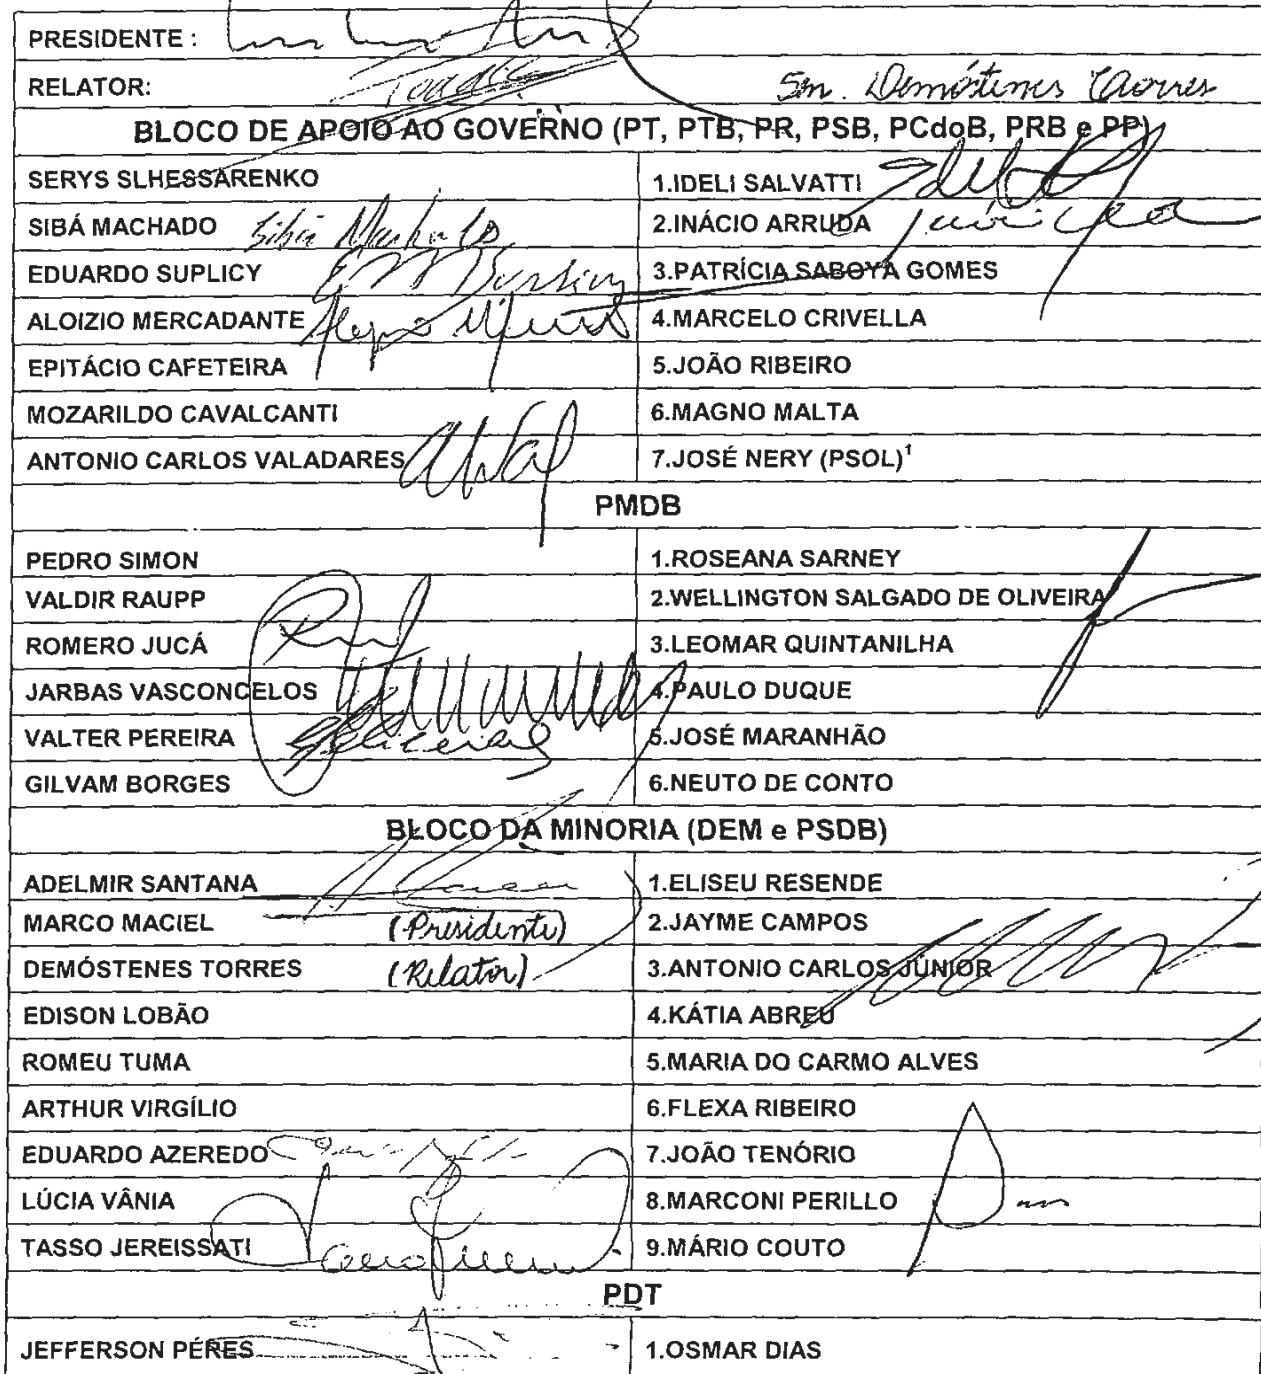 PRESIDENTE :
RELATOR: Sen. Demóstenes Torres
BLOCO DE APOIO AO GOVERNO (PT, PTB, PR, PSB, PCdoB, PRB e PP)
SERYS SLHESSARENKO 1.IDELI SALVATTI
SIBÁ MACHADO Sibá Machado 2.INÁCIO ARRUDA
EDUARDO SUPLICY 3.PATRÍCIA SABOYA GOMES
ALOIZIO MERCADANTE 4.MARCELO CRIVELLA
EPITÁCIO CAFETEIRA 5.JOÃO RIBEIRO
MOZARILDO CAVALCANTI 6.MAGNO MALTA
ANTONIO CARLOS VALADARES 7.JOSÉ NERY (PSOL)¹
PMDB
PEDRO SIMON 1.ROSEANA SARNEY
VALDIR RAUPP 2.WELLINGTON SALGADO DE OLIVEIRA
ROMERO JUCÁ 3.LEOMAR QUINTANILHA
JARBAS VASCONCELOS 4.PAULO DUQUE
VALTER PEREIRA 5.JOSÉ MARANHÃO
GILVAM BORGES 6.NEUTO DE CONTO
BLOCO DA MINORIA (DEM e PSDB)
ADELMIR SANTANA 1.ELISEU RESENDE
MARCO MACIEL (Presidente) 2.JAYME CAMPOS
DEMÓSTENES TORRES (Relator) 3.ANTONIO CARLOS JÚNIOR
EDISON LOBÃO 4.KÁTIA ABREU
ROMEU TUMA 5.MARIA DO CARMO ALVES
ARTHUR VIRGÍLIO 6.FLEXA RIBEIRO
EDUARDO AZEREDO 7.JOÃO TENÓRIO
LÚCIA VÂNIA 8.MARCONI PERILLO
TASSO JEREISSATI 9.MÁRIO COUTO
PDT
JEFFERSON PÉRES 1.OSMAR DIAS